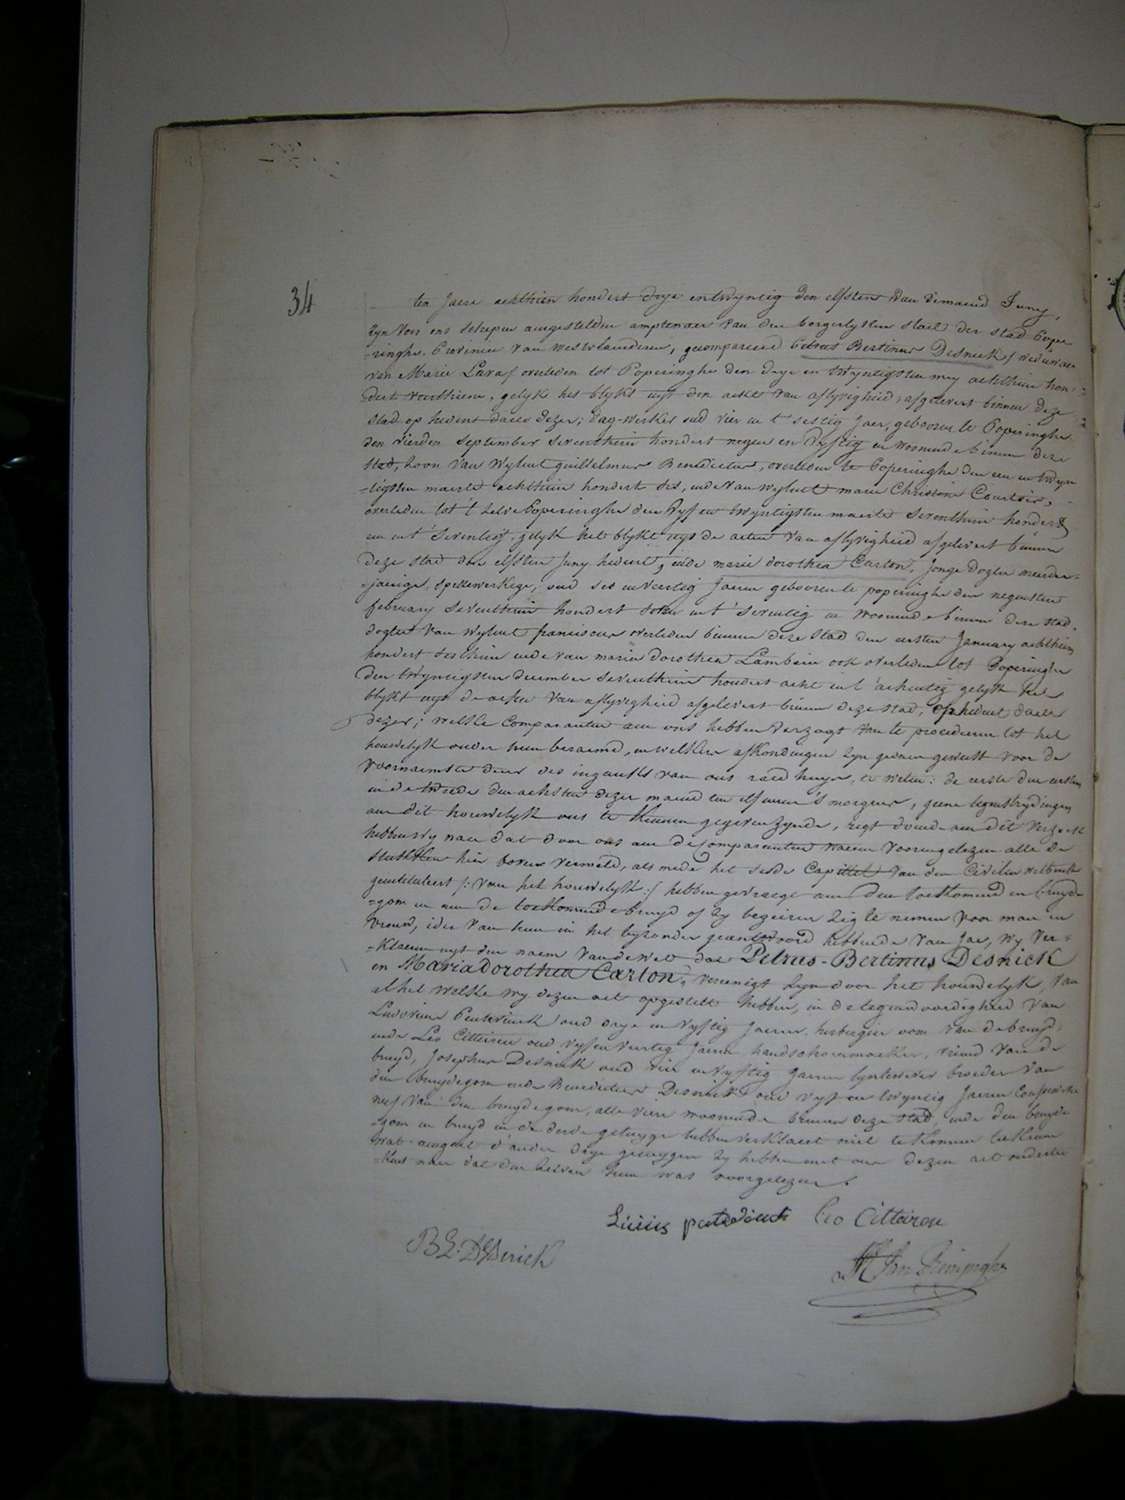 34
ten Jaere achthien hondert drye en twyntig den elfsten van de maend Juny,
zyn voor ons schepen aengestelden amptenaer van den borgerlyken staet der stad Pope-
-ringhe. Provincie van westvlaenderen, gecompareerd Petrus Bertinus Desnick, weduwaer
van Marie Lava, overleden tot Poperinghe den drye en twyntigsten mey achthien hon-
dert veerthien, gelyk het blykt uyt den acte van aflyvigheid, afgelevert binnen deze
stad op hedent daete dezer; dag-werker oud vier en t'sestig Jaer, gebooren te Poperinghe
den vierden september seventhien hondert negen en vyftig en woonende binnen deze
stad, zoon van wylent guillelmus Benedictus, overleden te Poperinghe den een en twyn
-tigsten maerte achthien hondert ses, ende van wylent marie Christine Courtois,
overleden tot 't zelve Poperinghe den vyf en twyntigsten maerte seventhien hondert
een en t'seventig. gelyk het blykt uyt de acten van aflyvigheid afgelevert binnen
deze stad den elfsten Juny hedent, ende marie dorothea Carton, Jonge dogter meerder-
-jaerige, spellewerkege, oud ses en veertig Jaeren gebooren te poperinghe den negensten
february seventhien hondert seven en t'seventig en woonende binnen deze stad.
dogter van wylent franciscus overleden binnen deze stad den eersten January achthien
hondert sesthien ende van marie dorothea Lambein ook overleden tot Poperinghe
den twyntigsten december seventhien hondert acht en t'achentig gelyk het
blykt uyt de acten van aflyvigheid afgelevert binnen deze stad, op hedent daete
dezer; welke Comparanten aen ons hebben verzogt van te procederen tot het
houwelyk onder hun beraemd, en welkers afkondingen zyn gedaen geweest voor de
voornaemste deure des ingancks van ons raed huys, te weten: de eerste den eersten
en de tweede den achsten dezer maend ten elf uren 's morgens, geene tegenstrydingen
aen dit houwelyk ons te kennen gegeven zynde, regt doende aen dit verzoek
hebben wy naer dat door ons aen de Comparanten waeren voorengelezen alle de
stukken hier boven vermeld, als mede het sesde Capittel van den Civilen wetboek
geintituleert /: van het houwelyk :/ hebben gevraegt aen den toekomende en bruyde-
-gom en aen de toekomende bruyd of zy begeiren zig te nemen voor man en
vrouw, ider van hun in het byzonder geantwoord hebbende van Jae, wy ver-
-klaeren uyt den naem van de wet dat Petrus-Bertinus Desnick
en Maria dorothea Carton, vereenigt zyn door het houwelyk, van
al het welke wy dezen act opgestelt hebben, in de tegenwoordigheid van
Ludovicus oud drye en vyftig Jaeren, herbergier oom van de bruyd,
ende Leo Citteiren oud vyf en veertig Jaeren handschoenmaeker, vriend van de
bruyd, Josephus Desnick oud vier en vyftig Jaeren lyntwever broeder van
den bruydegom ende Benedictus Desnick oud vyf en twyntig Jaeren
nef van den bruydegom, alle vier woonende binnen deze stad, ende den bruyde
-gom en bruyd en de derde getuyge hebben verklaert niet te konnen teekenen
wat aengaet d'ander drye getuygen zy hebben met ons dezen act onderte-
-kent naer dat den zelven hun was voorgelezen.
Leo Citteiren
B L Desnick